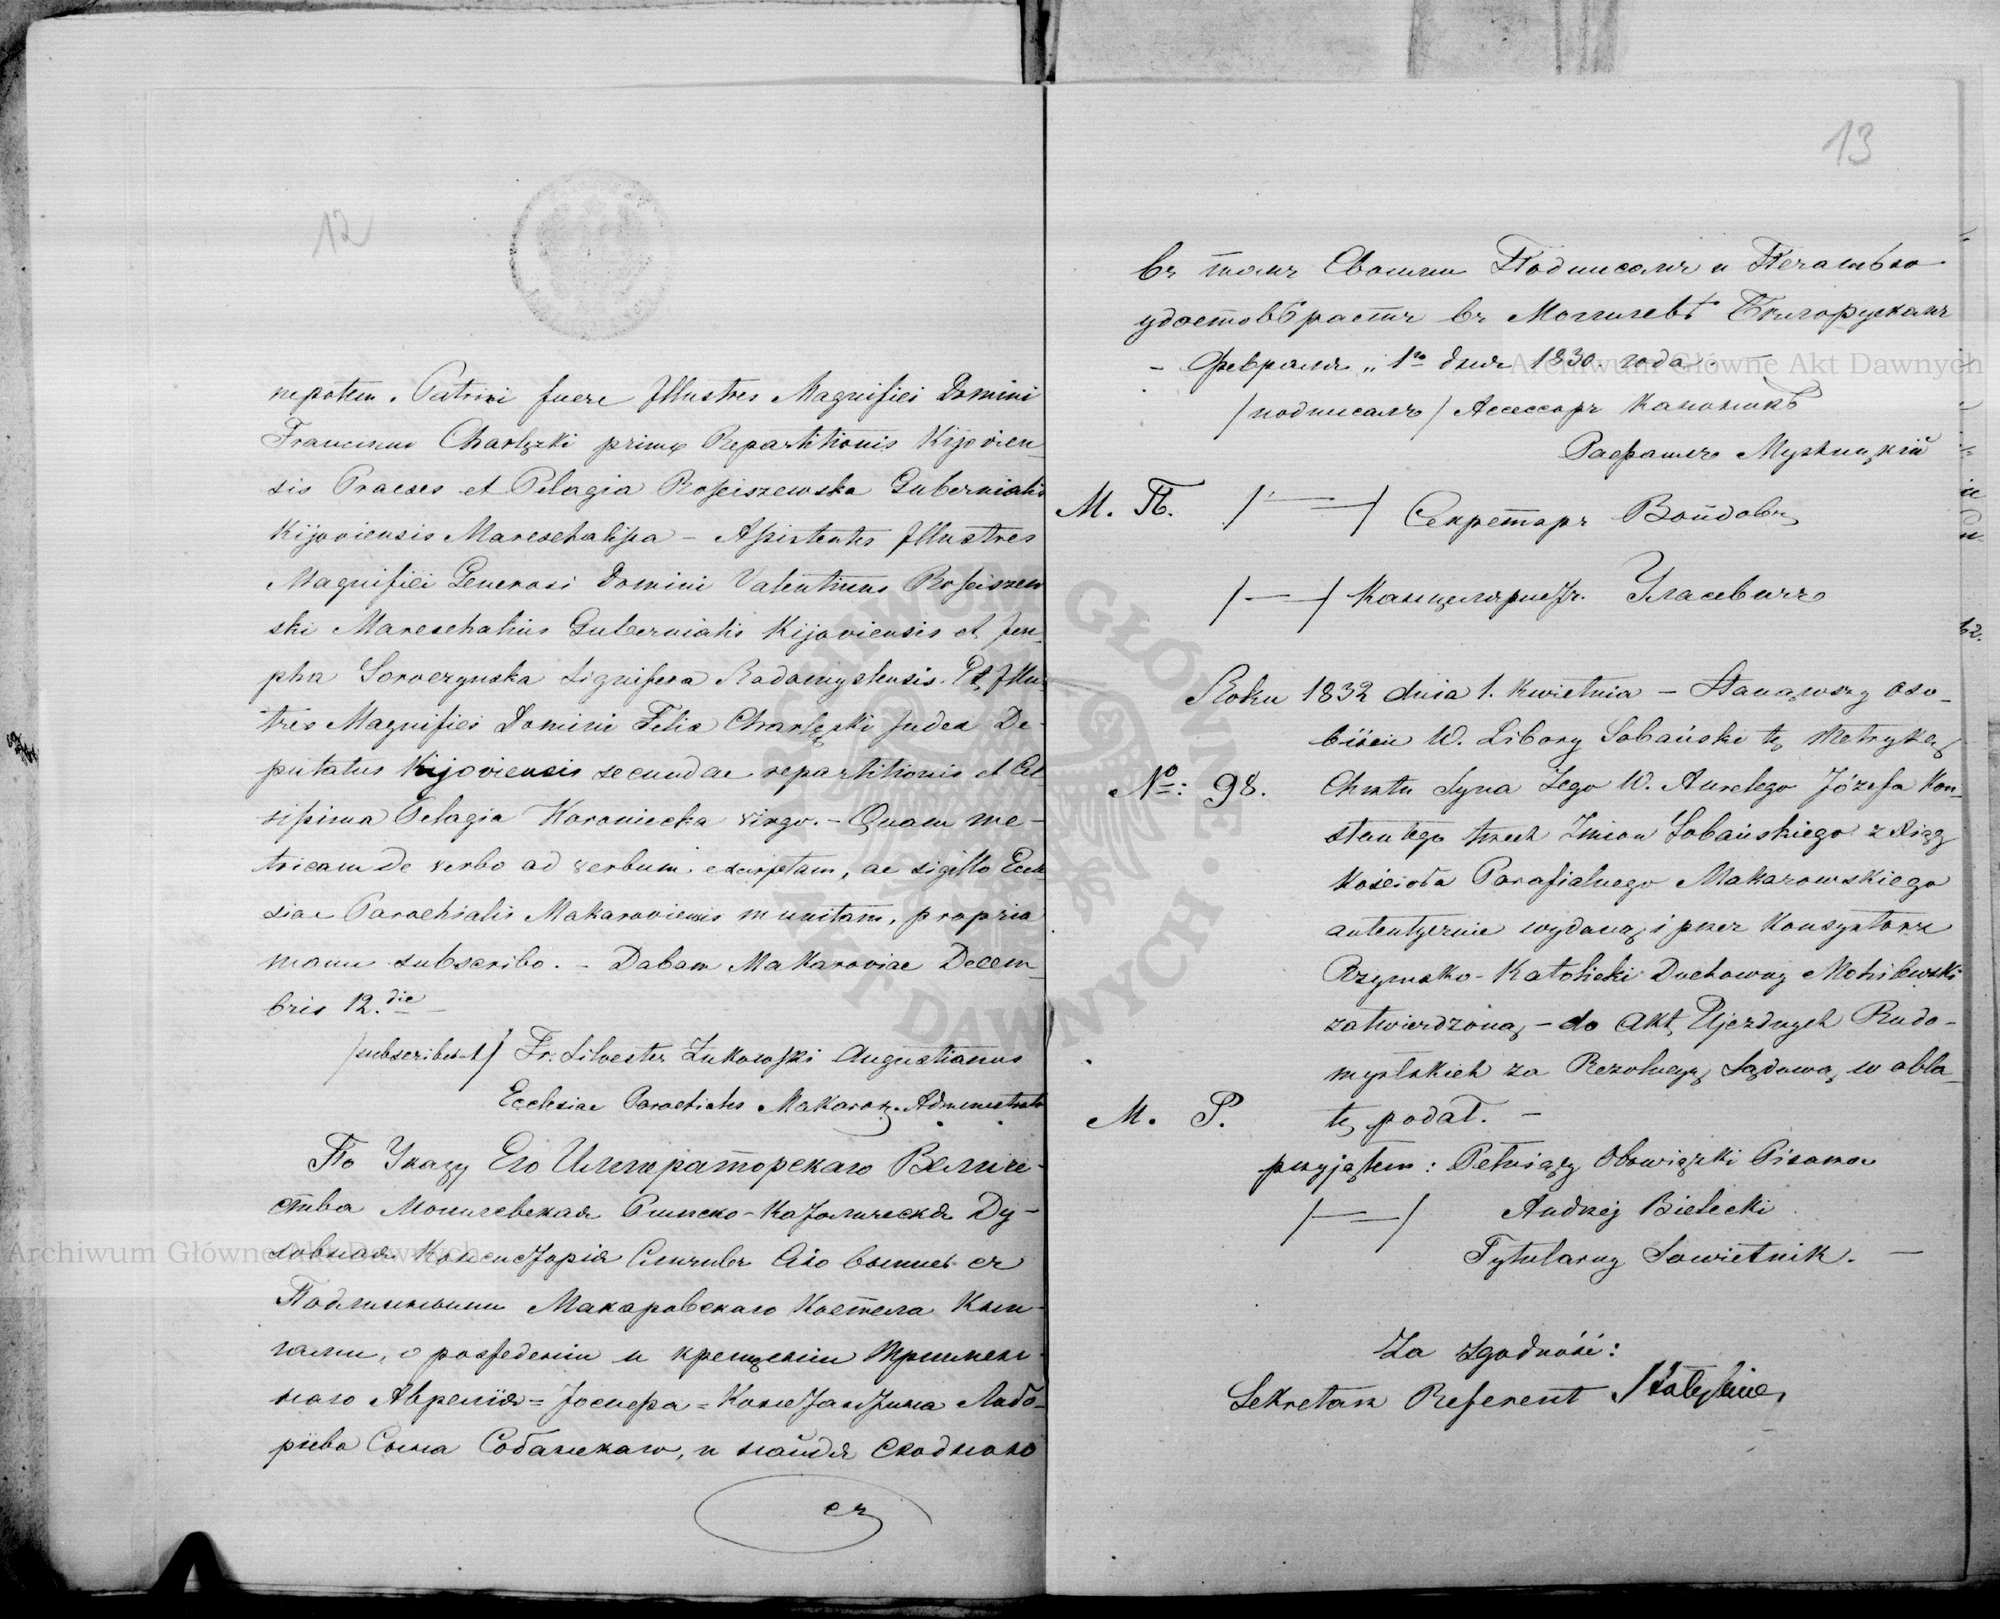 12
nepotem. Patrini fuere Illustres Magnifici Domini
Franciscus Charlęzki primæ Repartitionis Kijovien
sis Praeses et Pelagia Rościszewska Gubernialis
Kijoviensis Mareschalissa – Assistentes Illustres
Magnifici Generosi Domini Valentinus Rościszew
ski Mareschalius Gubernialis Kijoviensis et Jose
pha Soroczynska Lignifera Radomyslensis. Et Illu
tres Magnifici Domini Felix Charlęzki Judex De-
putatus Kijoviensis secundae repartitionis et Cel
sissima Pelagia Woroniecka virgo. – Quam me-
tricam de verbo ad verbum excerptam, ac sigillo Eccle
siae Parochialis Makaroviensis munitam, propria
manu subscribo. – Dabam Makaroviae Decem-
bris 12. die –
/subscribit/ Fr. Silvester Żukowski Augustianus
Ecclesiae Parochialis Makarov. Administrator
По Указу Его Императорскаго Величе-
ства Могилевская Римско-Католическая Ду-
ховная Консисторія Сличивъ сію выпись съ
Подлинными Макаровскаго Костела Кни-
гами, о рожденіи и крещеніи Триимен-
наго Аврелія = Іосифа = Константина Либо-
ріева Сына Собанскаго, и найдя Сходною
съ
13
въ томъ Своимъ Подписомъ и Печатью
удостовѣряетъ въ Могилевѣ Бѣлорускомъ
– Февраля „ 1го дня 1830. года. –
/подписалъ/ Асессоръ Каноникъ
Рафаилъ Мушницкій
М. П. /—/ Секретарь Войдовъ
/—/ Канцеляристъ. Уласевичъ
Roku 1832 dnia 1. Kwietnia – Stanąwszy oso-
biście W. Libory Sobański tę Metrykę
No: 98. Chrztu Syna Jego W. Aurelego Józefa Kon-
stantego trzech Imion Sobańskiego z Xiąg
Kościoła Parafialnego Makarowskiego
autentycznie wydaną i przez Konsystorz
Rzymsko-Katolicki Duchowny Mohilewski
zatwierdzoną, – do Akt Ujezdnych Rado-
myślskich za Rezolucyą Sądową w obla-
M. P. tę podał. –
przyjąłem: Pełniący Obowiązki Pisarza
/—/ Andrzej Bielecki
Tytularny Sowietnik. –
Za zgodność:
Sekretarz Referent